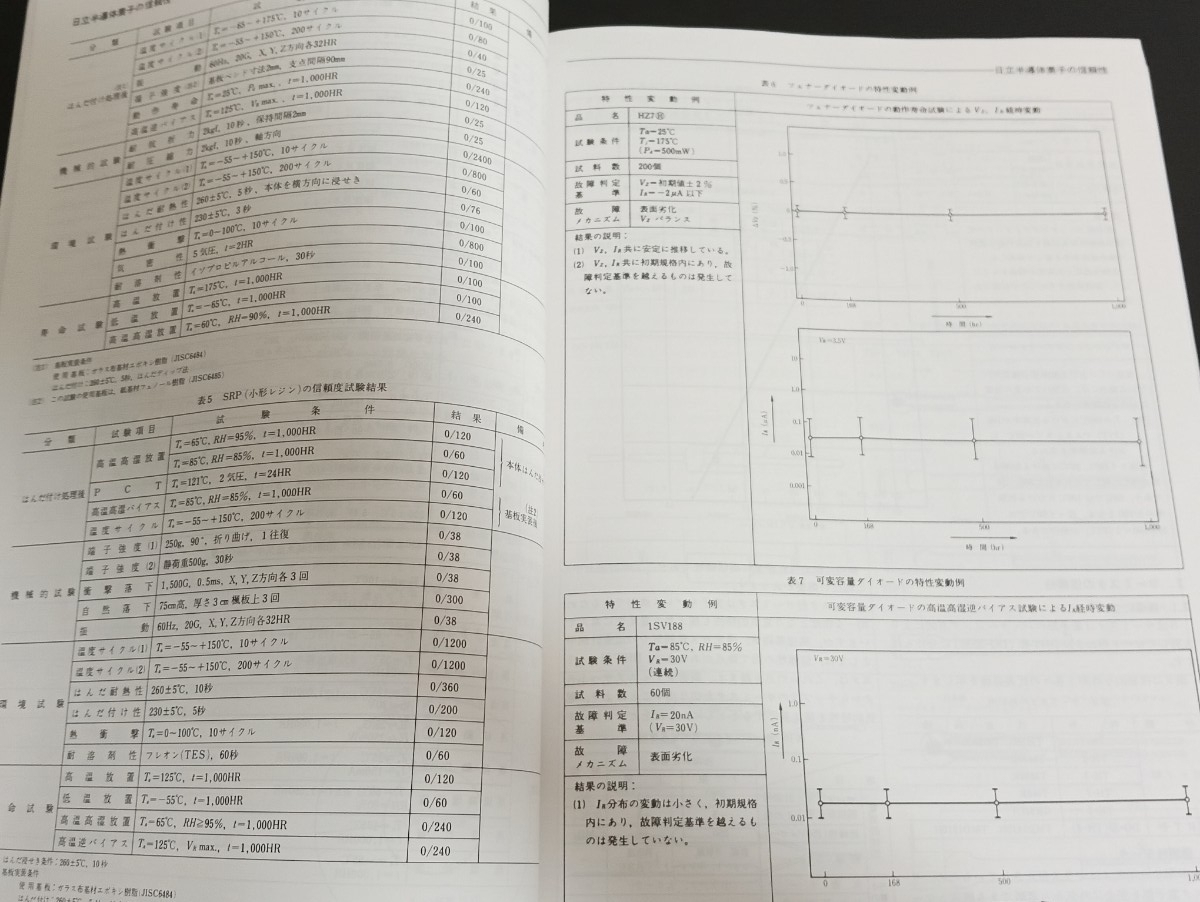 日立半導体素子の信頼性
分類 試験項目 試 結果 備
はんだ付け処理後
温度サイクル(1) Ta=-65~+175℃, 10サイクル 0/100
温度サイクル(2) Ta=-55~+150℃, 200サイクル 0/80
振動 60Hz, 20G, X, Y, Z方向各32HR 0/40
端子強度 基板ベンド寸法2mm, 支点間隔90mm 0/25
動作寿命 Ta=25℃, max., t=1,000HR 0/240
高温逆バイアス Ta=125℃, VR max., t=1,000HR 0/120
機械的試験
耐抗折力 2kgf, 10秒, 保持間隔2mm 0/25
耐圧縮力 2kgf, 10秒, 軸方向 0/25
環境試験
温度サイクル(1) Ta=-55~+150℃, 10サイクル 0/2400
温度サイクル(2) Ta=-55~+150℃, 200サイクル 0/800
はんだ耐熱性 260±5℃, 5秒, 本体を横方向に浸せき 0/60
はんだ付け性 230±5℃, 3秒 0/76
熱衝撃 Ta=0~100℃, 10サイクル 0/100
気密性 5気圧, t=2HR 0/800
耐溶剤性 イソプロピルアルコール, 30秒 0/100
寿命試験
高温放置 Ta=175℃, t=1,000HR 0/100
低温放置 Ta=-65℃, t=1,000HR 0/100
高温高湿放置 Ta=60℃, RH=90%, t=1,000HR 0/240
(注1) 基板実装条件
使用基板:ガラス布基材エポキシ樹脂 (JISC6484)
はんだ付け:260±5℃, 5秒, はんだディップ法
(注2) この試験の使用基板は, 紙基材フェノール樹脂 (JISC6485)
表5 SRP (小形レジン) の信頼度試験結果
分類 試験項目 試験条件 結果 備
はんだ付け処理後
高温高湿放置 Ta=65℃, RH=95%, t=1,000HR 0/120
Ta=85℃, RH=85%, t=1,000HR 0/60
PCT Ta=121℃, 2気圧, t=24HR 0/120
高温高湿バイアス Ta=85℃, RH=85%, t=1,000HR 0/60
温度サイクル Ta=-55~+150℃, 200サイクル 0/120
本体はんだ
基板実装後
機械的試験
端子強度(1) 250g, 90°, 折り曲げ, 1往復 0/38
端子強度(2) 静荷重500g, 30秒 0/38
衝撃落下 1,500G, 0.5ms, X, Y, Z方向各3回 0/38
自然落下 75cm高, 厚さ3cm楓板上3回 0/300
振動 60Hz, 20G, X, Y, Z方向各32HR 0/38
環境試験
温度サイクル(1) Ta=-55~+150℃, 10サイクル 0/1200
温度サイクル(2) Ta=-55~+150℃, 200サイクル 0/1200
はんだ耐熱性 260±5℃, 10秒 0/360
はんだ付け性 230±5℃, 5秒 0/200
熱衝撃 Ta=0~100℃, 10サイクル 0/120
耐溶剤性 フレオン(TES), 60秒 0/60
命試験
高温放置 Ta=125℃, t=1,000HR 0/120
低温放置 Ta=-55℃, t=1,000HR 0/60
高温高湿放置 Ta=65℃, RH≧95%, t=1,000HR 0/240
高温逆バイアス Ta=125℃, VR max., t=1,000HR 0/240
はんだ浸せき条件:260±5℃, 10秒
基板実装条件
使用基板:ガラス布基材エポキシ樹脂(JISC6484)
日立半導体素子の信頼性
表6 ツェナーダイオードの特性変動例
特性変動例
ツェナーダイオードの動作寿命試験によるVZ, IR経時変動
品名 HZ7Ⓗ
試験条件 Ta=25℃
Tj=175℃
(Pd=500mW)
試料数 200個
故障判定基準 VZ=初期値±2%
IR=-2μA以下
故障メカニズム 表面劣化
VZ バランス
結果の説明:
(1) VZ, IR共に安定に推移している。
(2) VZ, IR共に初期規格内にあり, 故
障判定基準を越えるものは発生して
ない。
ΔVZ (%)
1.0
0.5
0
-0.5
-1.0
0 168 500 1,000
時間 (hr)
VR=3.5V
IR (nA)
10
1.0
0.1
0.01
0.001
0 168 500 1,000
時間 (hr)
表7 可変容量ダイオードの特性変動例
特性変動例
可変容量ダイオードの高温高湿逆バイアス試験によるIR経時変動
品名 1SV188
試験条件 Ta=85℃, RH=85%
VR=30V
(連続)
試料数 60個
故障判定基準 IR=20nA
(VR=30V)
故障メカニズム 表面劣化
結果の説明:
(1) IR分布の変動は小さく, 初期規格
内にあり, 故障判定基準を越えるも
のは発生していない。
VR=30V
IR (nA)
1.0
0.1
0.01
0 168 500 1,00